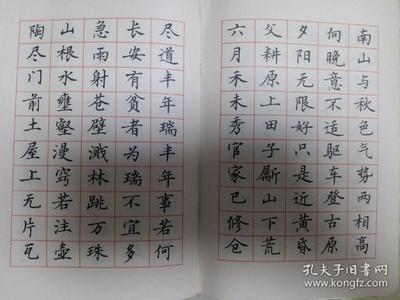 南山与秋色气势两相高
向晚意不适驱车登古原
夕阳无限好只是近黄昏
父耕原上田子劚山下荒
六月禾未秀官家已修仓
尽道丰年瑞丰年事若何
长安有贫者为瑞不宜多
急雨射苍壁溅林跳万珠
山根水壅壑漫窍若注壶
陶尽门前土屋上无片瓦
孔夫子旧书网
www.kongfz.com